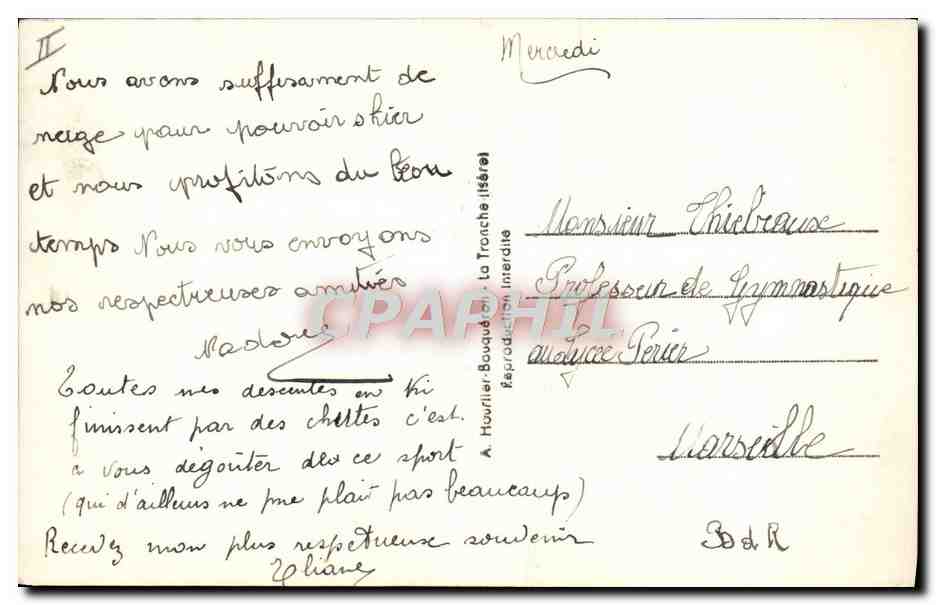 II
Nous avons suffisament de
neige pour pouvoir skier
et nous profitons du beau
temps Nous vous envoyons
nos respectueuses amitiés
Toutes mes descentes en ski
finissent par des chutes c'est
a vous dégoûter de ce sport
(qui d'ailleurs ne me plait pas beaucoup)
Recevez mon plus respectueux souvenir
Eliane
A. Hourlier-Bouquéron - La Tronche (Isère)
Reproduction Interdite
Mercredi
Monsieur Thiebraux
Professeur de Gymnastique
au Lycée Périer
Marseille
B d R
CPAPHIL